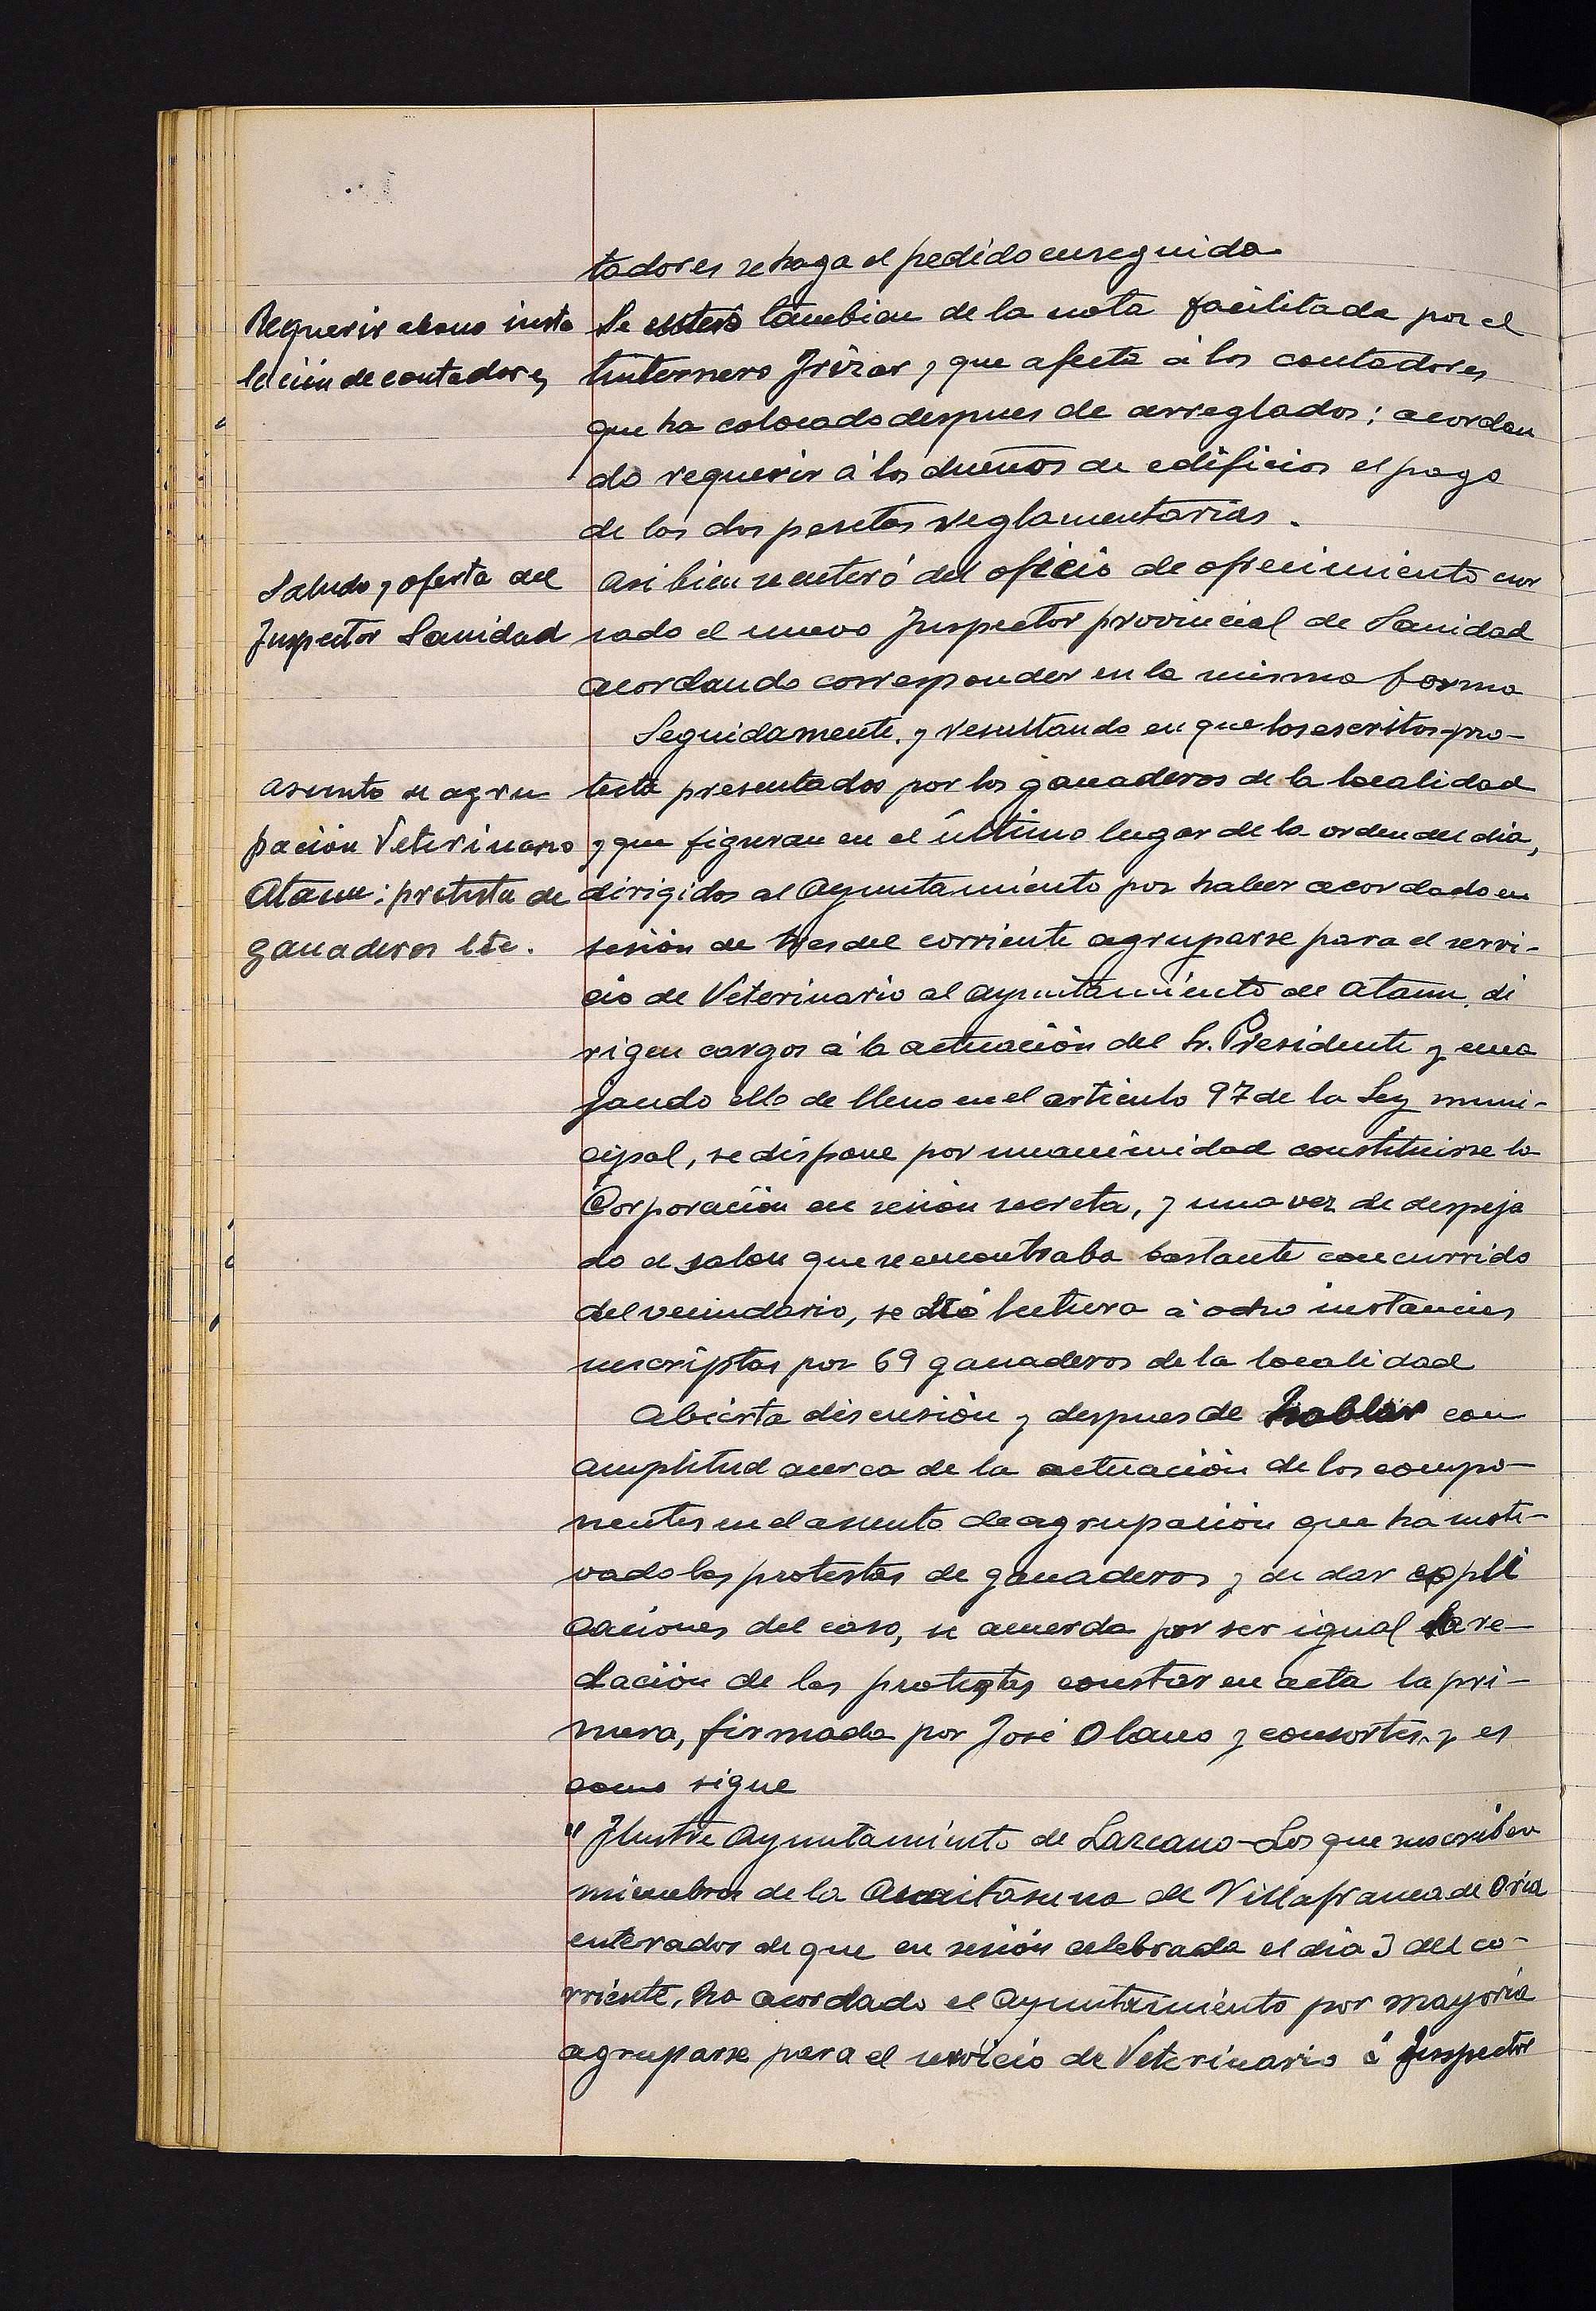 tadores se haga el pedido enseguida
Requerir abono insta
lación de contadores
Se enteró tambien de la nota facilitada por el
linternero Irizar y que afecta á los contadores
que ha colocado despues de arreglados; acordan
do requerir á los dueños de edificios el pago
de las dos pesetas reglamentarias.
Saludo y oferta del
Inspector Sanidad
Asi bien se enteró del oficio de ofrecimiento cur
sado el nuevo Inspector provincial de Sanidad
acordando corresponder en la misma forma
Seguidamente, y resultando en que los escritos pro-
Asunto de agru
pación Veterinario
Ataun: protesta de
ganaderos etc.
testa presentados por los ganaderos de la localidad
y que figuran en el último lugar de la orden del dia,
dirigidos al Ayuntamiento por haber acordado en
sesión de tres del corriente agruparse para el servi-
cio de Veterinario al ayuntamiento de Ataun, di
rigen cargos á la actuación del Sr. Presidente y enca
jando ello de lleno en el articulo 97 de la Ley muni-
cipal, se dispone por unanimidad constituirse la
Corporación en sesión secreta, y una vez de despeja
do el salon que se encontraba bastante concurrido
del vecindario, se dió lectura á ocho instancias
suscriptas por 69 ganaderos de la localidad
Abierta discusión y despues de hablar con
amplitud acerca de la actuación de los compo-
nentes en el asunto de agrupación que ha moti-
vado las protestas de ganaderos y de dar expli
caciones del caso, se acuerda por ser igual la re-
dación de las protestas constar en acta la pri-
mera, firmada por José Olano y consortes y es
como sigue
"Ilustre Ayuntamiento de Lazcano-Los que suscriben
miembros de la Anaitasuna de Villafranca de Oria
enterados de que en sesión celebrada el dia 3 del co-
rriente, ha acordado el Ayuntamiento por mayoria
agruparse para el servicio de Veterinario é Inspector